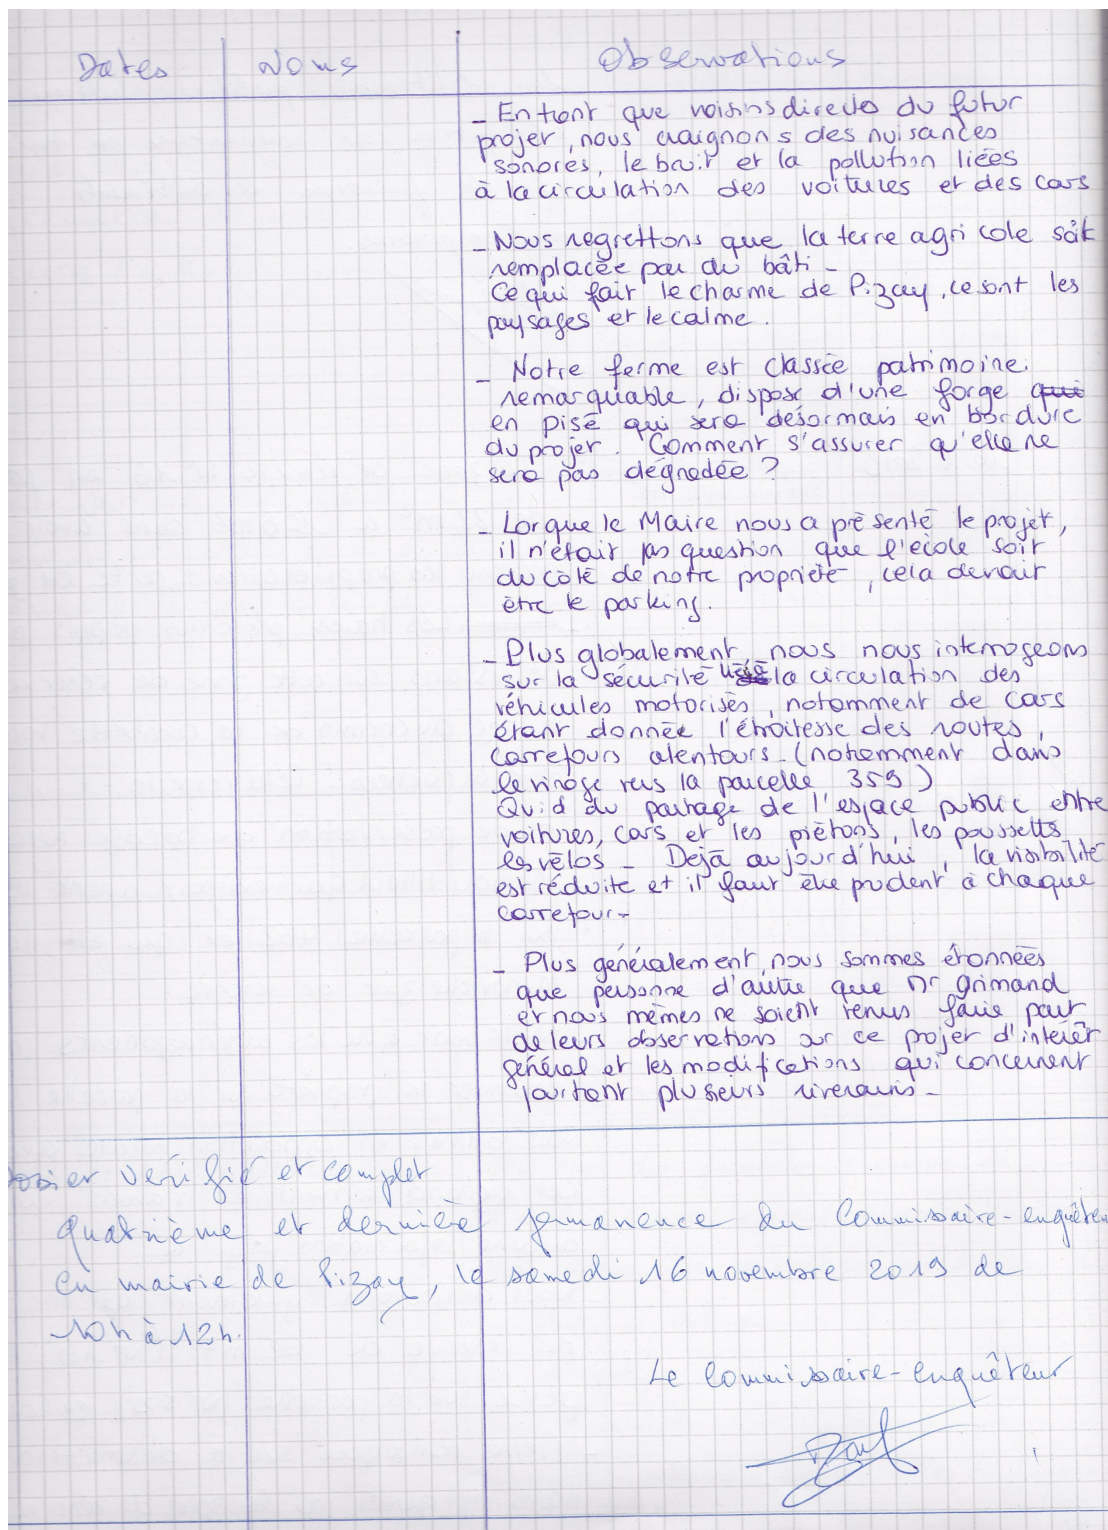 Dates Noms Observations
- En tant que voisins directs du futur
projet, nous craignons des nuisances
sonores, le bruit et la pollution liées
à la circulation des voitures et des cars
- Nous regrettons que la terre agricole soit
remplacée par du bâti -
Ce qui fait le charme de Pizay, ce sont les
paysages et le calme.
- Notre ferme est classée patrimoine
remarquable, dispose d'une forge qui
en pisé qui sera désormais en bordure
du projet. Comment s'assurer qu'elle ne
sera pas dégradée ?
- Lorque le Maire nous a présenté le projet,
il n'était pas question que l'école soit
du côté de notre propriété, cela devait
être le parking.
- Plus globalement, nous nous interrogeons
sur la sécurité liée la circulation des
véhicules motorisés, notamment de cars
étant donnée l'étroitesse des routes,
carrefours alentours - (notamment dans
le virage vers la parcelle 359)
Quid du partage de l'espace public entre
voitures, cars et les piétons, les poussettes
les vélos - Déjà aujourd'hui, la visibilité
est réduite et il faut être prudent à chaque
carrefour -
- Plus généralement, nous sommes étonnées
que personne d'autre que Mr Grimand
et nous mêmes ne soient venus faire part
de leurs observations sur ce projet d'intérêt
général et les modifications qui concernent
pourtant plusieurs riverains -
Dossier vérifié et complet
Quatrième et dernière permanence du Commissaire-enquêteur
en mairie de Pizay, le samedi 16 novembre 2019 de
10h à 12h.
Le Commissaire-enquêteur